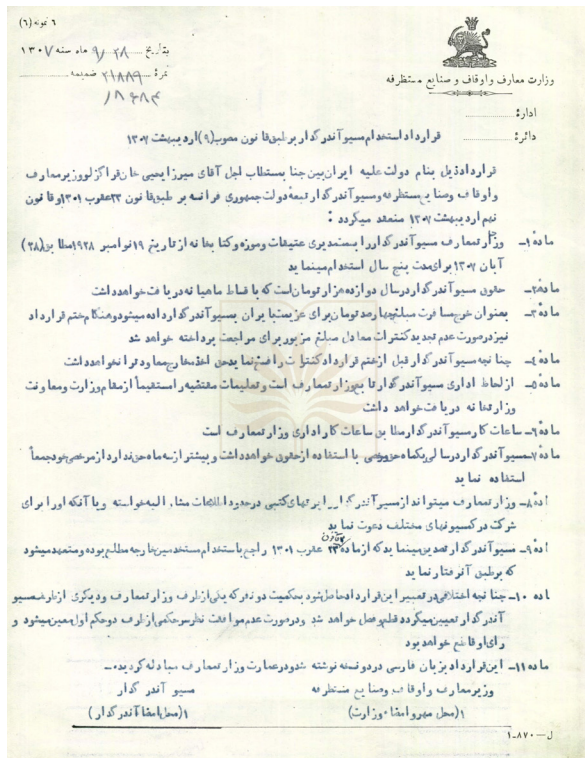 ۶ نمونه (٦)
بتاریخ ۲۸ / ۹ ماه سنه ۱۳۰۷
نمرۀ ۲۱۸۸۹ ضمیمه
وزارت معارف و اوقاف و صنایع مستظرفه
ادارۀ
دائرۀ
قرارداد استخدام مسیو آندر گدار بر طبق قانون مصوب (۹) اردیبهشت ۱۳۰۷
قرارداد ذیل بنام دولت علیه ایران بین جناب مستطاب اجل آقای میرزا یحیی خان قراگزلو وزیر معارف
و اوقاف و صنایع مستظرفه و مسیو آندر گدار تبعۀ دولت جمهوری فرانسه بر طبق قانون ۲۳ عقرب ۱۳۰۱ و قانون
نهم اردیبهشت ۱۳۰۷ منعقد میگردد :
مادۀ ۱ــ وزارت معارف مسیو آندر گدار را بسمت مدیری عتیقات و موزه و کتابخانه از تاریخ ۱۹ نوامبر ۱۹۲۸ مطابق (۲۸)
آبان ۱۳۰۷ برای مدت پنج سال استخدام مینماید
مادۀ ۲ــ حقوق مسیو آندر گدار در سال دوازده هزار تومان است که باقساط ماهیانه دریافت خواهد داشت
مادۀ ۳ــ بعنوان خرج مسافرت مبلغ چهارصد تومان برای عزیمت بایران بمسیو آندر گدار داده میشود و هنگام ختم قرارداد
نیز در صورت عدم تجدید کنترات معادل مبلغ مزبور برای مراجعت پرداخته خواهد شد
مادۀ ۴ــ چنانچه مسیو آندر گدار قبل از ختم قرارداد کنترات را فسخ نماید حق اخذ مخارج معاودت را نخواهد داشت
مادۀ ۵ــ از لحاظ اداری مسیو آندر گدار تابع وزارت معارف است و تعلیمات مقتضیه را مستقیماً از مقام وزارت و معاونت
وزارتخانه دریافت خواهد داشت
مادۀ ۶ــ ساعات کار مسیو آندر گدار مطابق ساعات کار اداری وزارت معارف است
مادۀ ۷ــ مسیو آندر گدار در سالی یکماه حق مرخصی با استفاده از حقوق خواهد داشت و بیشتر از سه ماه حق ندارد از مرخصی خود جمعاً
استفاده نماید
ادۀ ۸ــ وزارت معارف میتواند از مسیو آندر گدار راپرتهای کتبی در حدود اطلاعات مشار الیه خواسته و یا آنکه او را برای
شرکت در کمسیونهای مختلف دعوت نماید
ادۀ ۹ــ مسیو آندر گدار تصدیق مینماید که از مادۀ قانون ۲۳ عقرب ۱۳۰۱ راجع باستخدام مستخدمین خارجه مطلع بوده و متعهد میشود
که بر طبق آن رفتار نماید
اده ۱۰ــ چنانچه اختلافی در تعبیر این قرارداد حاصل شود بحکمیت دو نفر که یکی از طرف وزارت معارف و دیگری از طرف مسیو
آندر گدار تعیین میگردد قطع و فصل خواهد شد و در صورت عدم موافقت نظر سر حکمی از طرف دو حکم اول معین میشود و
رأی او قاطع خواهد بود
ماده ۱۱ــ این قرارداد بزبان فارسی در دو نسخه نوشته شد و در عمارت وزارت معارف مبادله گردید.ــ
وزیر معارف و اوقاف و صنایع مستظرفه
مسیو آندر گدار
۱(محل مهر و امضاء وزارت)
۱(محل امضا آندر گدار)
ل — ۱ـ۸۷۰